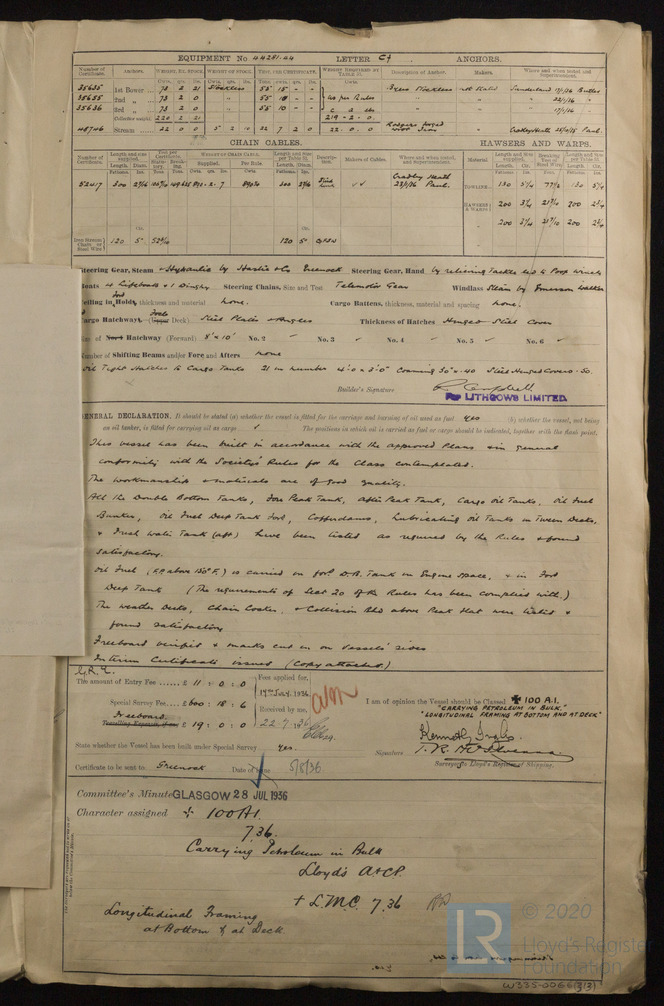 EQUIPMENT No 44281.44 LETTER C† ANCHORS.
Number of Certificate. Anchors. WEIGHT, EX. STOCK. WEIGHT OF STOCK. TEST, PER CERTIFICATE. WEIGHT REQUIRED BY TABLE 31. Description of Anchor. Makers. Where and when tested and Superintendent.
35635 1st Bower 73 2 21 Stockless 55 15 - - Byers Stockless Sunderland 17/1/36 Butler
35655 2nd " 73 2 0 " 55 12 - - as per Rules " 22/1/36 "
35636 3rd " 73 2 0 " 55 10 - - " 17/1/36 "
Collective weight 220 2 21 219 - 2 - 0.
48746 Stream 22 0 0 5 2 10 22 7 2 0 22. 0. 0 Rodgers forged Iron Cradley Heath Paul.
CHAIN CABLES. HAWSERS AND WARPS.
Number of Certificate. Length and size supplied. Test per Certificate. WEIGHT OF CHAIN CABLE. Length and size per Table 31. Description. Makers of Cables. Where and when tested, and Superintendent. Material Length and Size supplied. Breaking Test of Steel Wire. Length and Size per Table 31.
52417 300 2 9/16 892 - 2 - 7 890 3/4 300 2 9/16 Stud Link Cradley Heath 23/1/36 Paul. TOWLINE 130 5 1/4 77 1/2 130 5 1/4
HAWSERS & WARPS 200 3 1/4 21 7/10 200 2 3/4
" 200 3 1/4 21 7/10 200 2 3/4
Iron Stream Chain or Steel Wire 120 5" 52 4/10 120 5"
Steering Gear, Steam & Hydraulic by Hastie & Co Greenock Steering Gear, Hand by relieving tackles led to Poop winch
Boats 4 Lifeboats & 1 Dinghy Steering Chains, Size and Test Telemotor Gear Windlass Steam by Emerson Walker
Ceiling in Holds, thickness and material none. Cargo Battens, thickness, material and spacing none.
Cargo Hatchways. (Upper Deck) Steel Plates & Angles Thickness of Hatches Hinged Steel Cover
Size of Hatchway (Forward) 8' x 10' No. 2 No. 3 ✓ No. 4 ✓ No. 5 ✓ No. 6 ✓
Number of Shifting Beams and/or Fore and Afters none
Oil Tight Hatches to Cargo Tanks 21 in number 4'.0 x 3'.0" Coaming 30" x .40 Steel Hinged Covers .50.
Builder's Signature R. Campbell
For LITHGOWS LIMITED.
GENERAL DECLARATION. It should be stated (a) whether the vessel is fitted for the carriage and burning of oil used as fuel yes (b) whether the vessel, not being
an oil tanker, is fitted for carrying oil as cargo ✓ The positions in which oil is carried as fuel or cargo should be indicated, together with the flash point.
This vessel has been built in accordance with the approved Plans & in general
conformity with the Society's Rules for the Class contemplated.
The workmanship & materials are of good quality.
All the Double Bottom Tanks, Fore Peak Tank, After Peak Tank, Cargo Oil Tanks, Oil Fuel
Bunker, Oil Fuel Deep Tank Ford, Cofferdams, Lubricating Oil Tanks in Tween Decks,
& Fresh Water Tank (aft) have been tested as required by the Rules & found
satisfactory.
Oil Fuel, (F.P. above 150°F.) is carried in ford D.B. Tank in Engine space, & in Ford
Deep Tank (The requirements of Sect 20 of the Rules has been complied with.)
The weather Decks, Chain Locker, & Collision Bhd above Peak flat were tested &
found satisfactory
Freeboard verified & marks cut in on vessels' sides
Interim Certificate issued (copy attached.)
The amount of Entry Fee £ 11 : 0 : 0 Fees applied for, 14th July, 1936
Special Survey Fee £ 600 : 18 : 6 Received by me,
Freeboard
Travelling Expenses, if any £ 19 : 0 : 0 22.7.1936
I am of opinion the Vessel should be Classed ✠ 100 A.1.
"CARRYING PETROLEUM IN BULK."
"LONGITUDINAL FRAMING AT BOTTOM AND AT DECK"
State whether the Vessel has been built under Special Survey yes.
Signature
Surveyor to Lloyd's Register of Shipping.
Certificate to be sent to Greenock Date of issue 5/8/36
Committee's Minute GLASGOW 28 JUL 1936
Character assigned ✠ 100A1.
7.36.
Carrying Petroleum in Bulk
Lloyd's A&CP.
+ L.M.C. 7,36
Longitudinal Framing
at Bottom & at Deck
© 2020
LR
Lloyd's Register
Foundation
W335-0066(3/3)